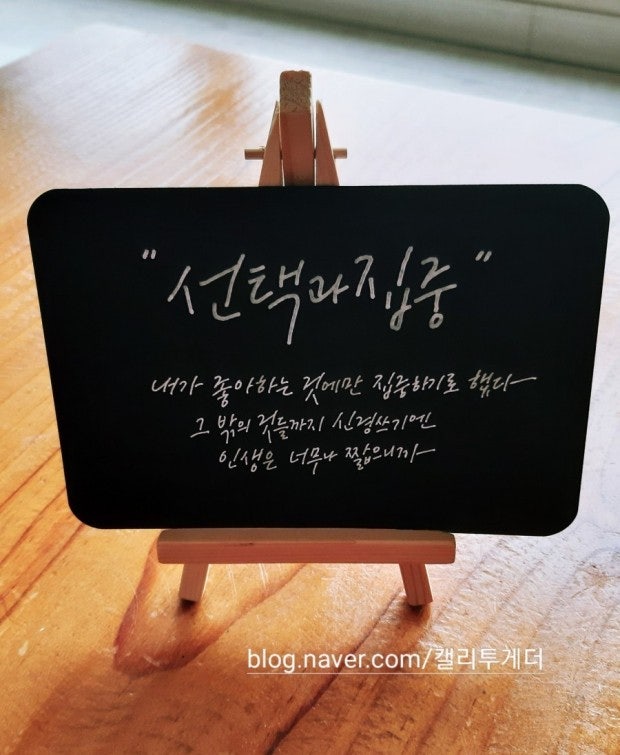 "선택과집중"
내가 좋아하는 것에만 집중하기로 했다
그 밖의 것들까지 신경쓰기엔
인생은 너무나 짧으니까
blog.naver.com/캘리투게더